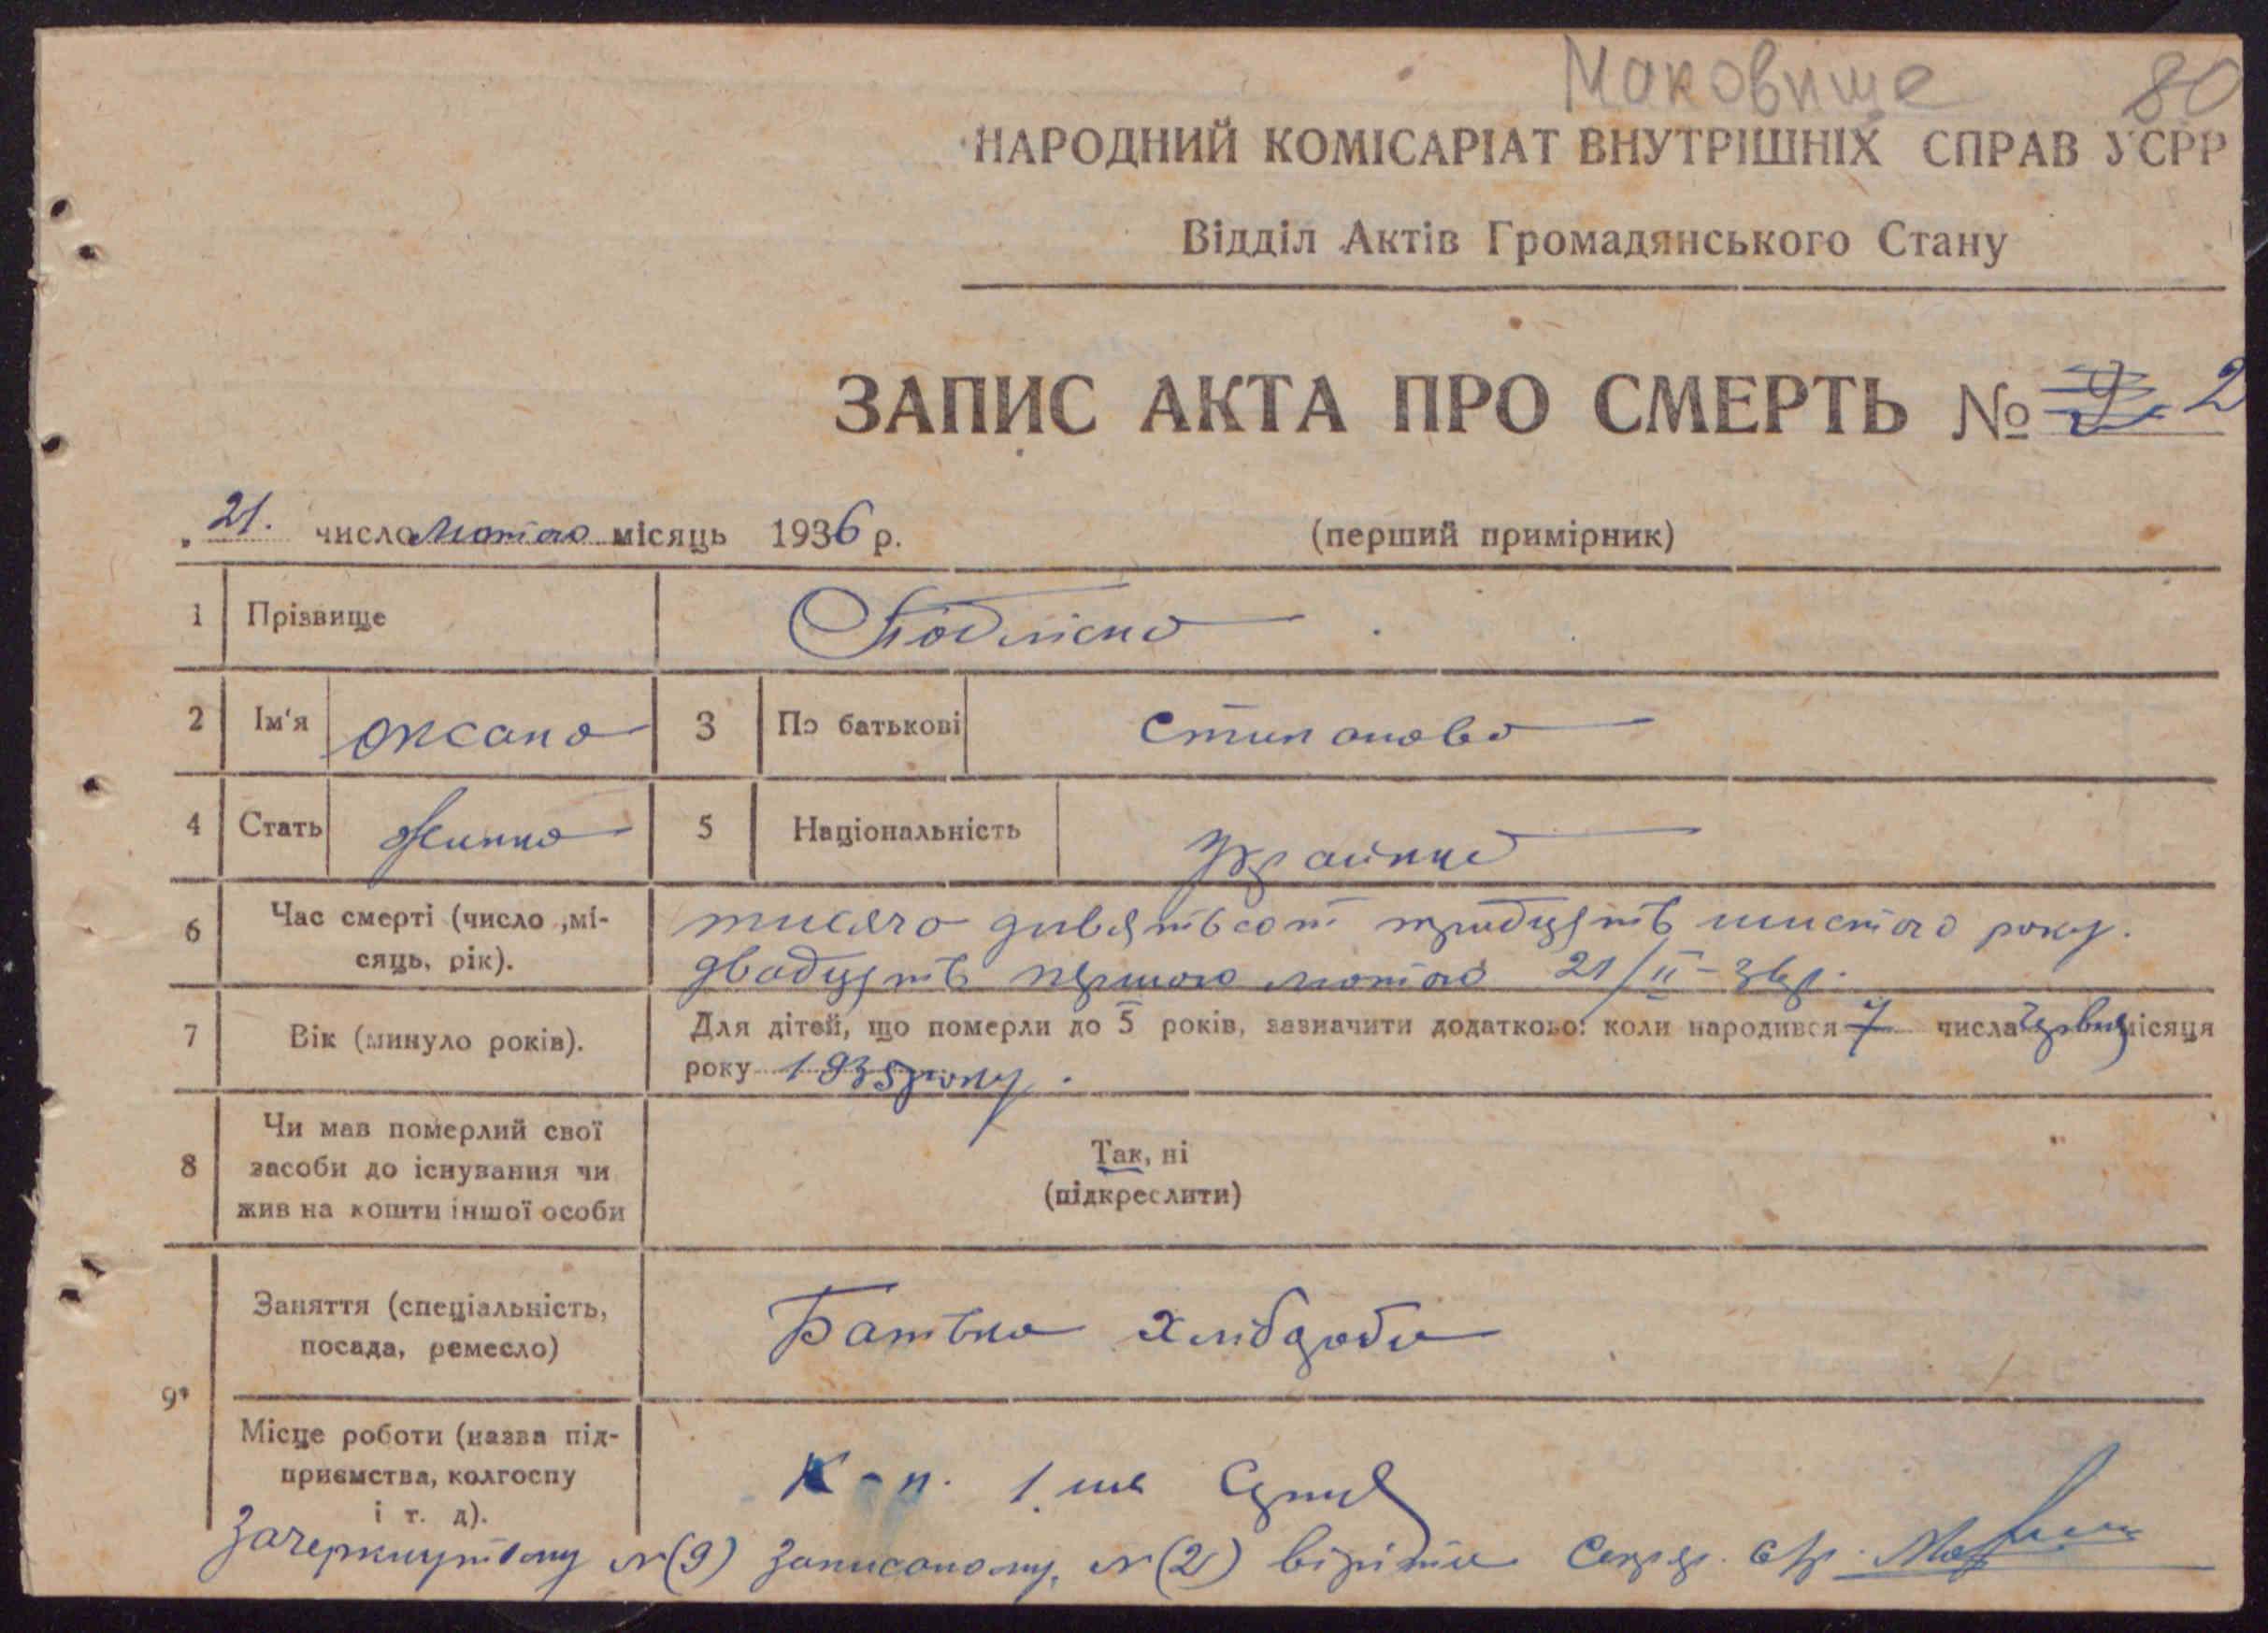 Маковище 80
НАРОДНИЙ КОМІСАРІАТ ВНУТРІШНІХ СПРАВ УСРР
Відділ Актів Громадянського Стану
ЗАПИС АКТА ПРО СМЕРТЬ № 9 2
„ 21. число лютого місяць 1936 р.
(перший примірник)
1 Прізвище
2 Ім'я Оксана 3 По батькові Стипанова
4 Стать Жинка 5 Національність Украйнка
6 Час смерті (число ,мі-
сяць, рік).
тисяча дивятьсот тридцять шистого року.
двадцять першого лютого 21/II-36р.
7 Вік (минуло років).
Для дітей, що померли до 5 років, зазначити додатково: коли народився 7 числа червня місяця
року 1935 року.
8 Чи мав померлий свої
засоби до існування чи
жив на кошти іншої особи
Так, ні
(підкреслити)
9 Заняття (спеціальність,
посада, ремесло)
Батько хлібороб
Місце роботи (назва під-
приємства, колгоспу
і т. д).
К-п. 1.ше Серпня
Зачеркнутому №(9) записаному №(2) вірити Секрер. с/р.